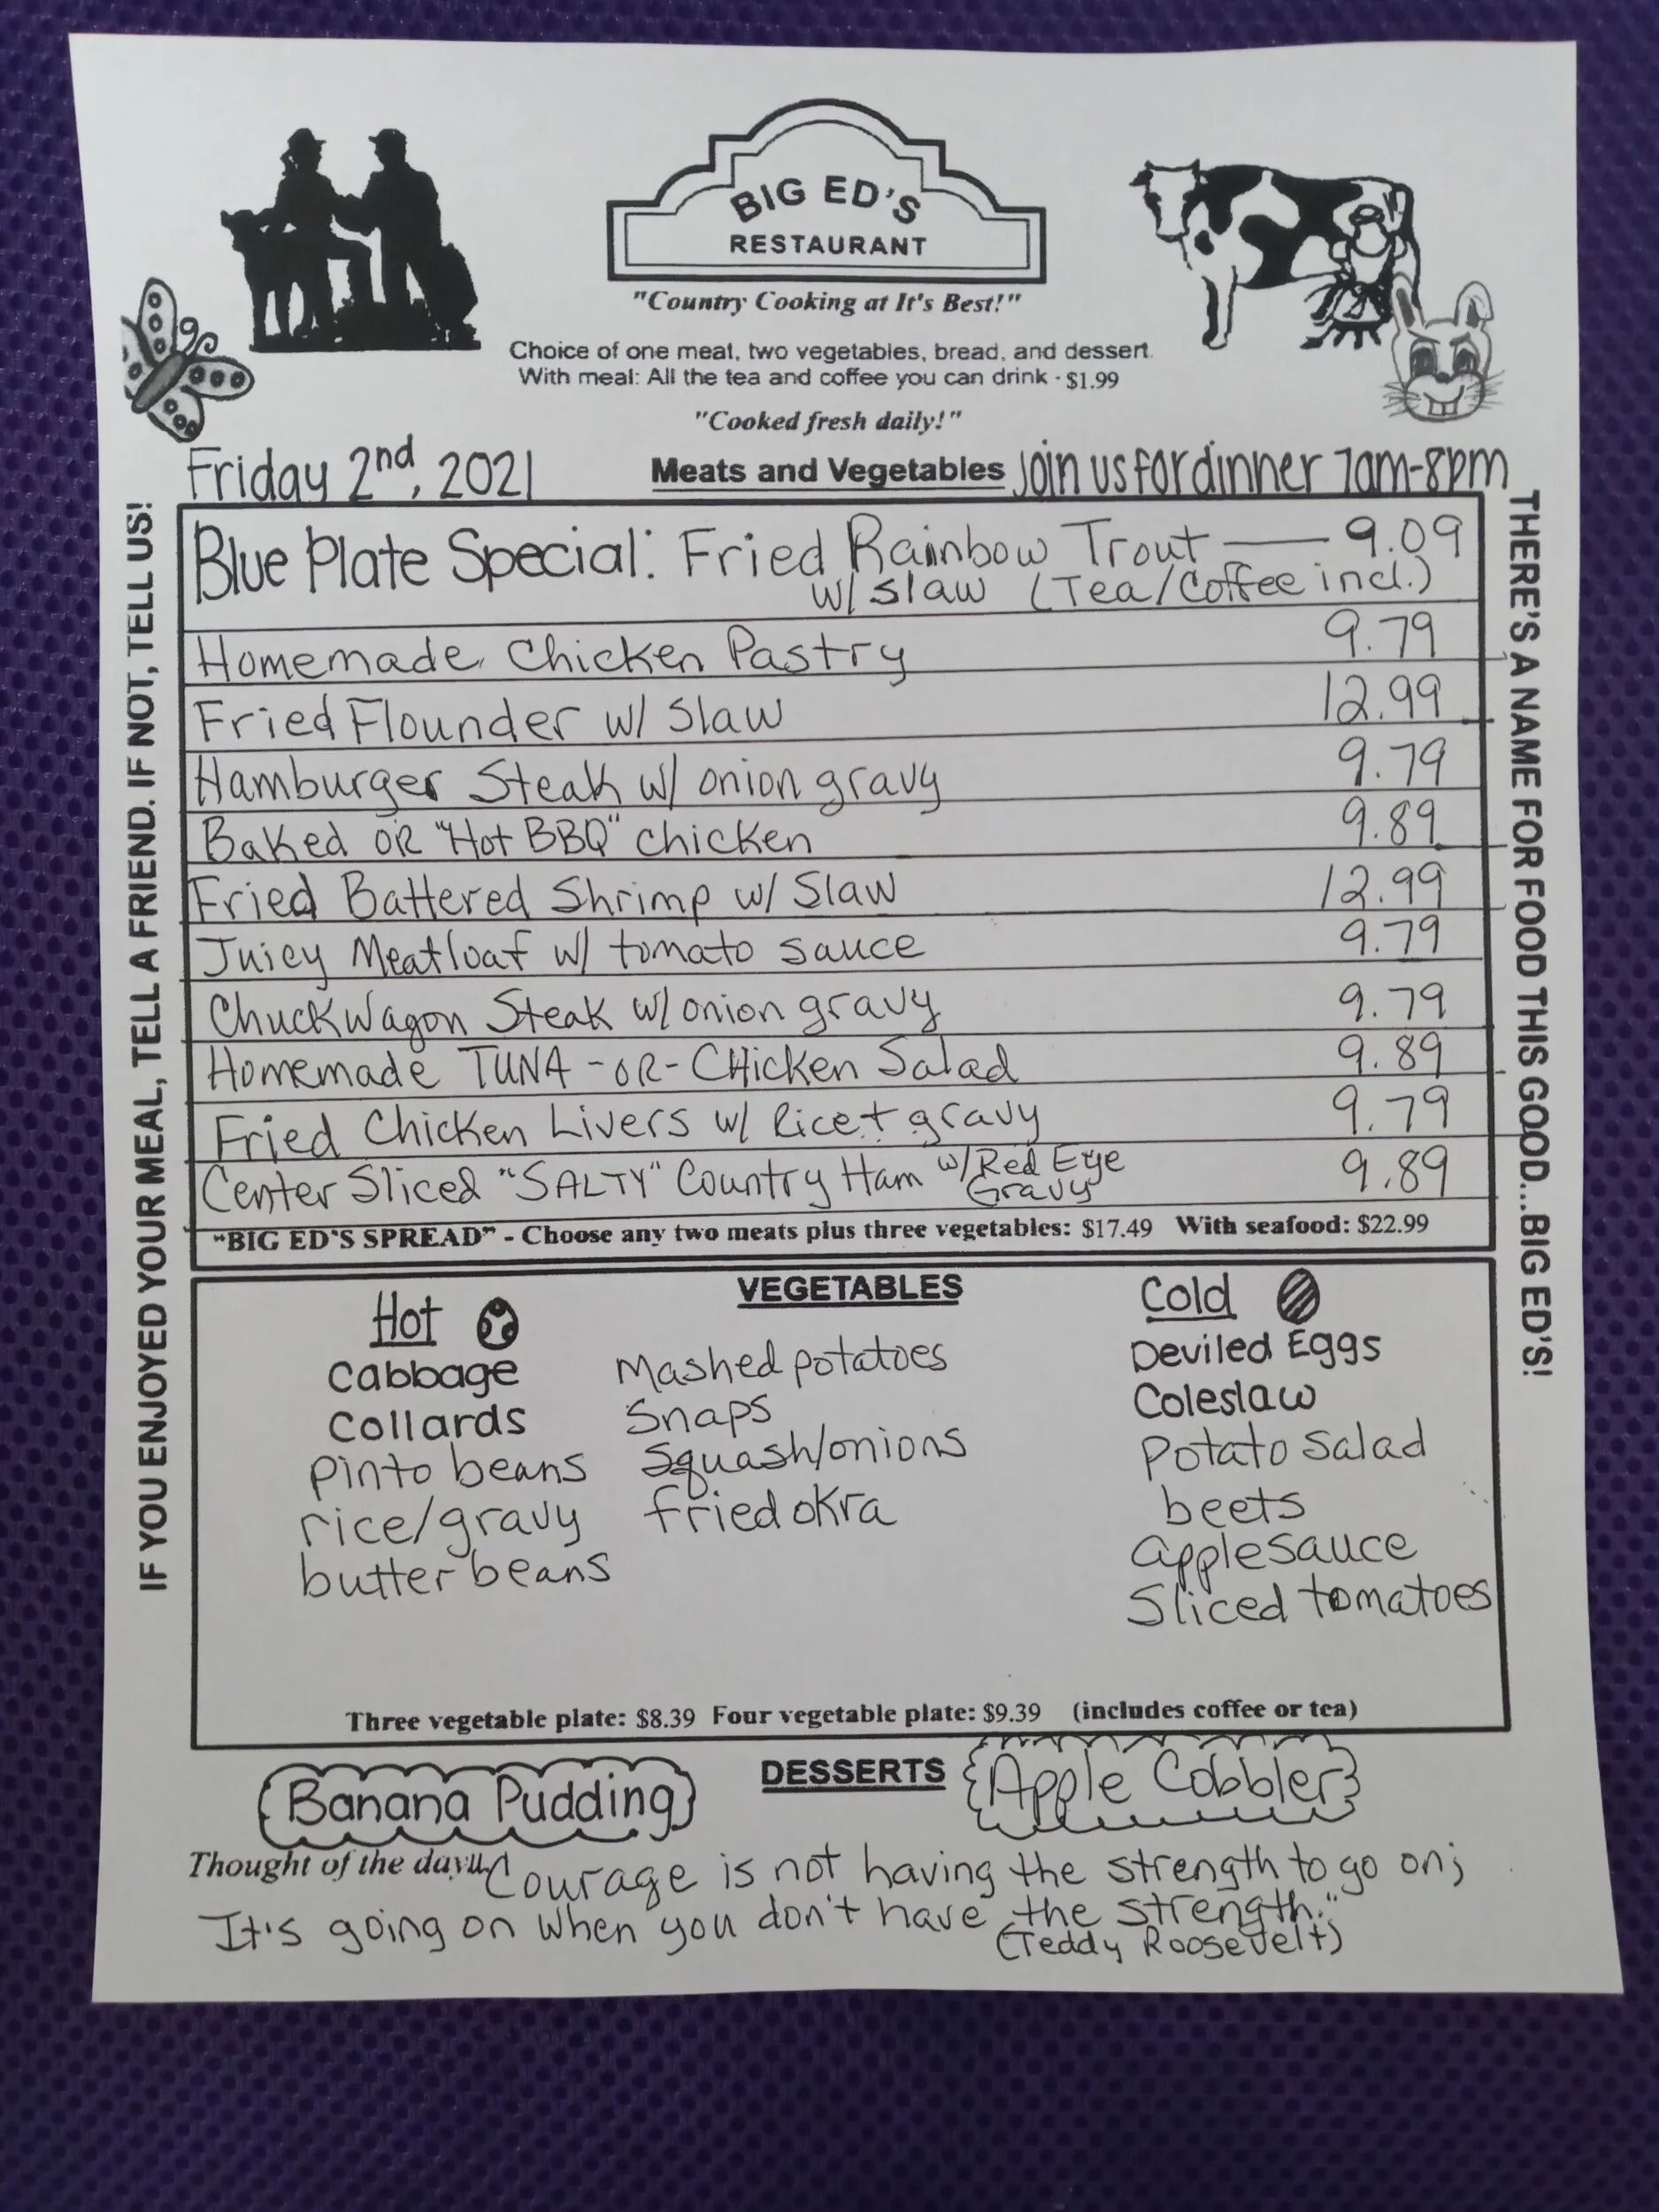 BIG ED'S
RESTAURANT
"Country Cooking at It's Best!"
Choice of one meat, two vegetables, bread, and dessert.
With meal: All the tea and coffee you can drink - $1.99
"Cooked fresh daily!"
Friday 2nd, 2021
Meats and Vegetables
Join us for dinner 7am-8pm
IF YOU ENJOYED YOUR MEAL, TELL A FRIEND. IF NOT, TELL US!
THERE'S A NAME FOR FOOD THIS GOOD...BIG ED'S!
Blue Plate Special: Fried Rainbow Trout — 9.09
w/ slaw (Tea/Coffee incl.)
Homemade Chicken Pastry 9.79
Fried Flounder w/ Slaw 12.99
Hamburger Steak w/ onion gravy 9.79
Baked OR "Hot BBQ" chicken 9.89
Fried Battered Shrimp w/ Slaw 12.99
Juicy Meatloaf w/ tomato sauce 9.79
Chuckwagon Steak w/ onion gravy 9.79
Homemade TUNA -OR- CHicken Salad 9.89
Fried Chicken Livers w/ Rice + gravy 9.79
Center Sliced "SALTY" Country Ham w/ Red Eye Gravy 9.89
"BIG ED'S SPREAD" - Choose any two meats plus three vegetables: $17.49 With seafood: $22.99
VEGETABLES
Hot
Cabbage
Collards
pinto beans
rice/gravy
butter beans
Mashed potatoes
Snaps
Squash/onions
fried okra
Cold
Deviled Eggs
Coleslaw
Potato Salad
beets
applesauce
Sliced tomatoes
Three vegetable plate: $8.39 Four vegetable plate: $9.39 (includes coffee or tea)
DESSERTS
Banana Pudding
Apple Cobbler
Thought of the day: "Courage is not having the strength to go on;
It's going on when you don't have the strength."
(Teddy Roosevelt)